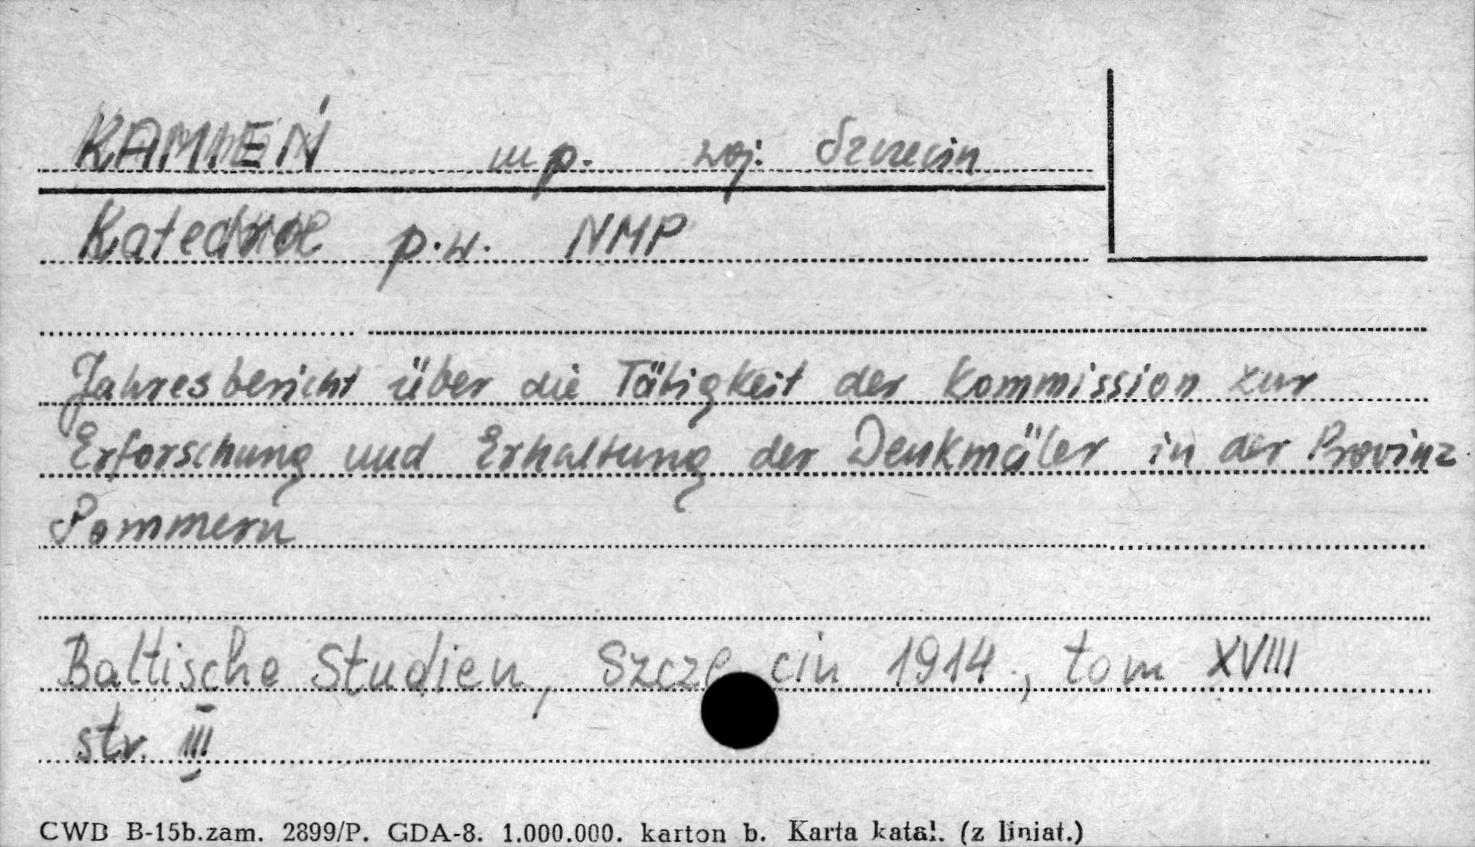 KAMIEŃ mp. woj: Szczecin
Katedra p.w. NMP
Jahresbericht über die Tätigkeit der Kommission zur
Erforschung und Erhaltung der Denkmäler in der Provinz
Pommern
Baltische Studien, Szczecin 1914, tom XVIII
str. III
CWD B-15b.zam. 2899/P. GDA-8. 1.000.000. karton b. Karta katal. (z liniat.)